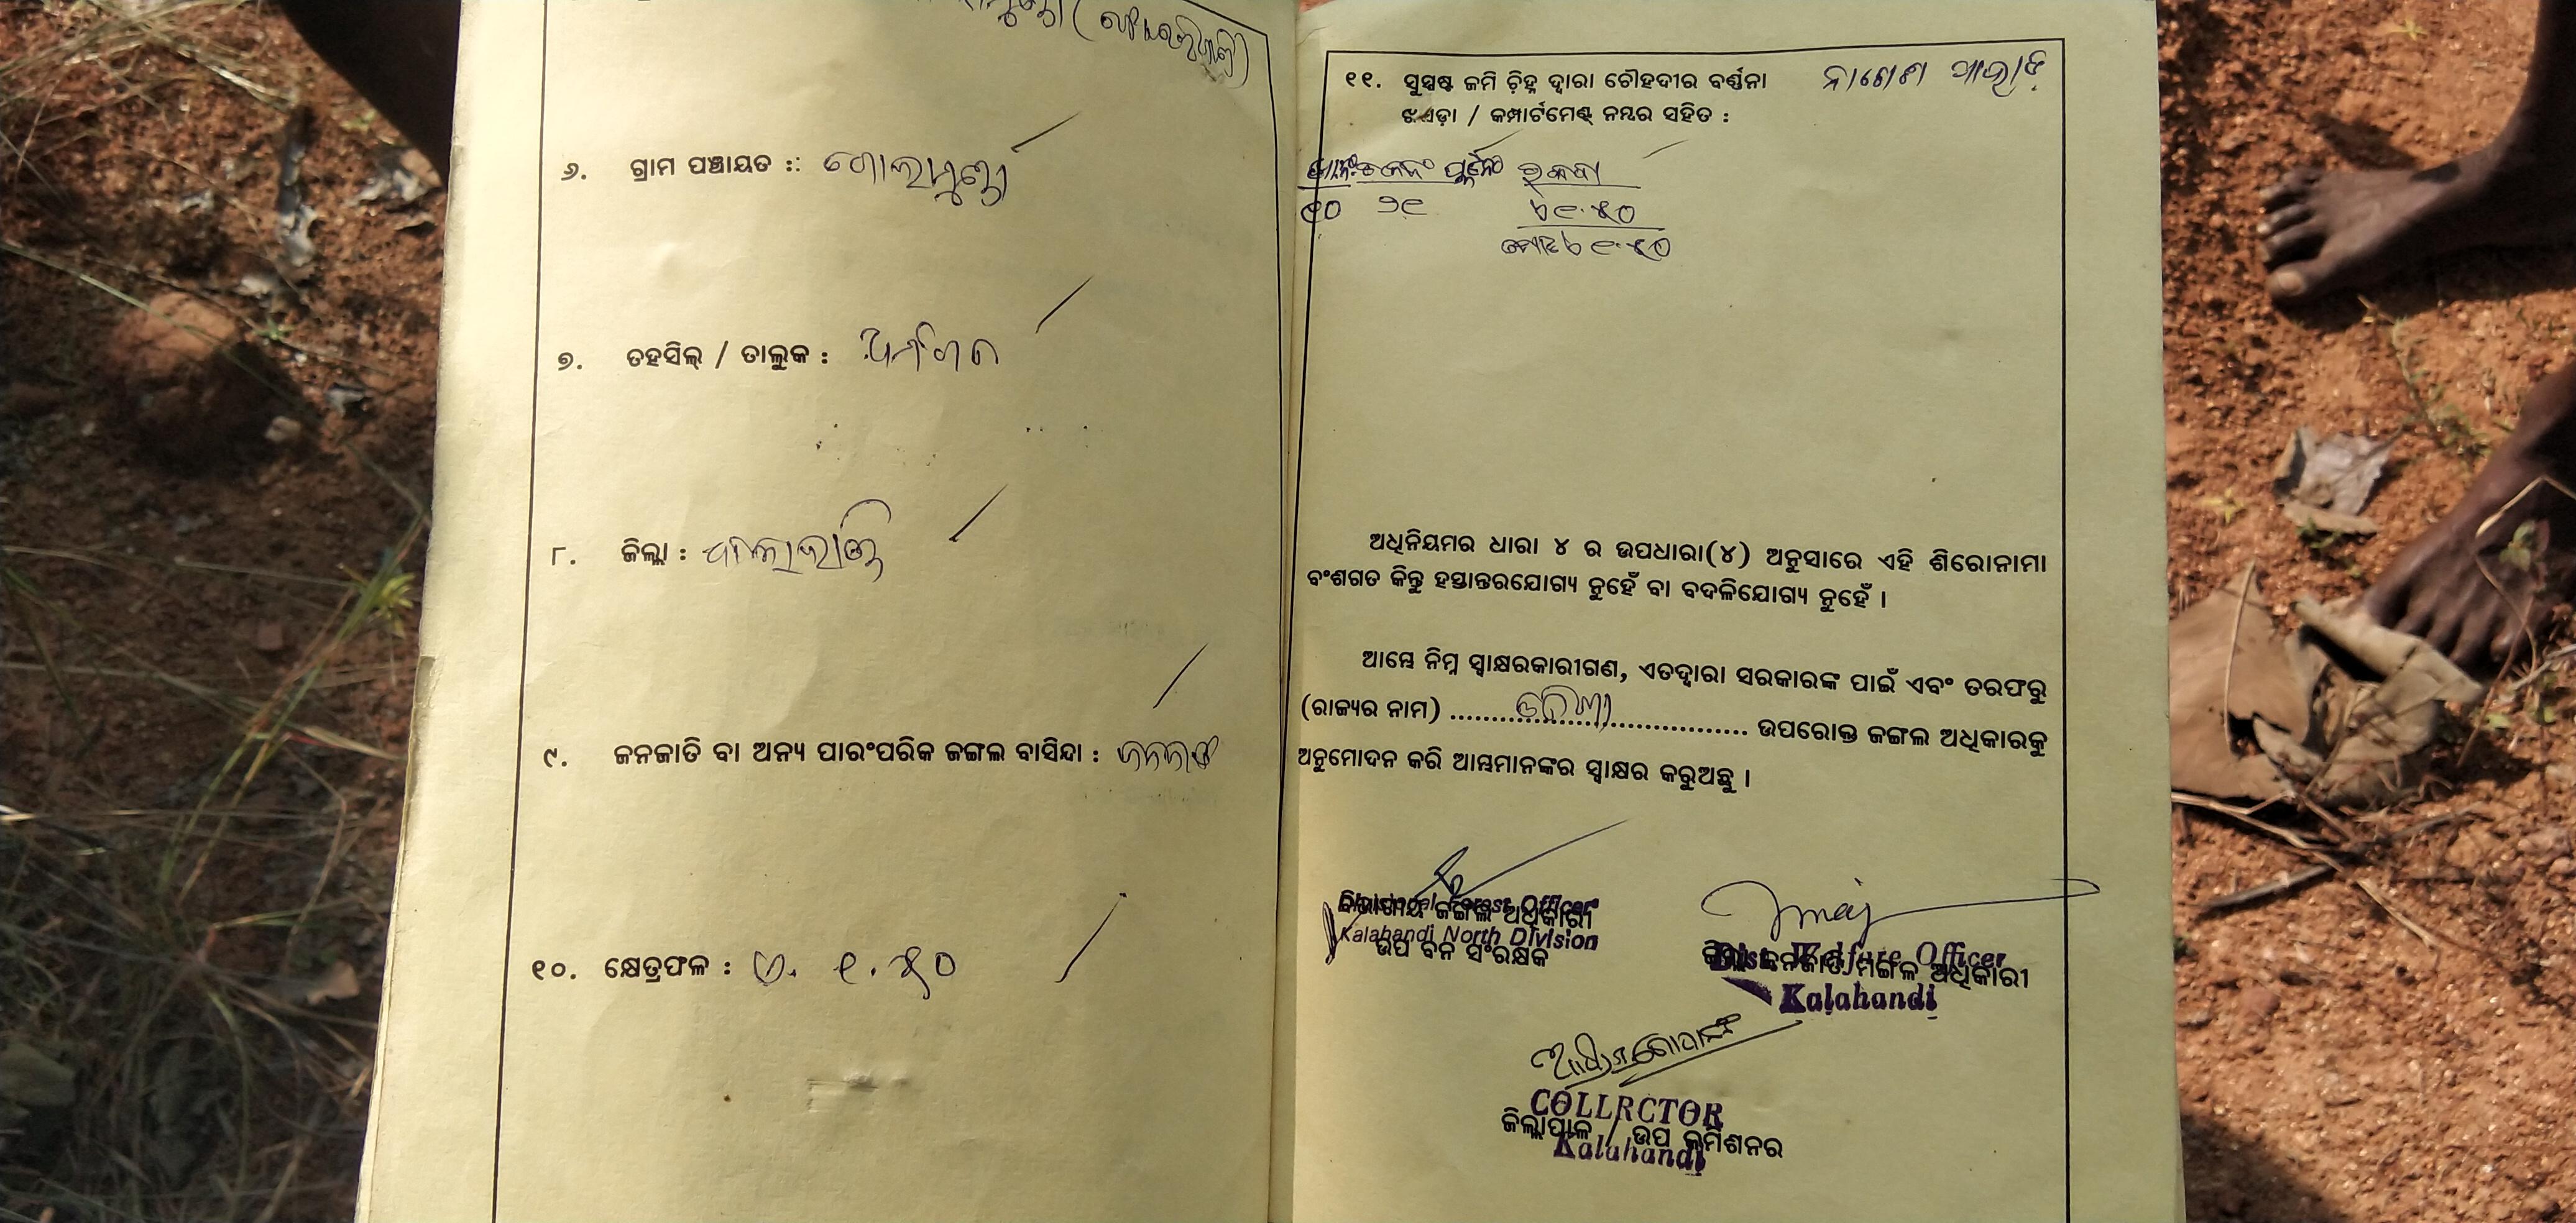 ୬. ଗ୍ରାମ ପଞ୍ଚାୟତ :: ଗୋଲାମୁଣ୍ଡା
୭. ତହସିଲ୍ / ତାଲୁକ :
୮. ଜିଲ୍ଲା : କଳାହାଣ୍ଡି
୯. ଜନଜାତି ବା ଅନ୍ୟ ପାରଂପରିକ ଜଙ୍ଗଲ ବାସିନ୍ଦା : ଜନଜାତି
୧୦. କ୍ଷେତ୍ରଫଳ : ଏ. ୧.୫୦
୧୧. ସୁସ୍ପଷ୍ଟ ଜମି ଚିହ୍ନ ଦ୍ୱାରା ଚୌହଦୀର ବର୍ଣ୍ଣନା
ଝସଡ଼ା / କମ୍ପାର୍ଟମେଣ୍ଟ୍ ନମ୍ବର ସହିତ :
ରକବା
୧୦ ୨୧ ଏ୧.୫୦
ମୋଟ ଏ୧.୫୦
ଅଧିନିୟମର ଧାରା ୪ ର ଉପଧାରା(୪) ଅନୁସାରେ ଏହି ଶିରୋନାମା
ବଂଶଗତ କିନ୍ତୁ ହସ୍ତାନ୍ତରଯୋଗ୍ୟ ନୁହେଁ ବା ବଦଳିଯୋଗ୍ୟ ନୁହେଁ ।
ଆମ୍ଭେ ନିମ୍ନ ସ୍ୱାକ୍ଷରକାରୀଗଣ, ଏତଦ୍ୱାରା ସରକାରଙ୍କ ପାଇଁ ଏବଂ ତରଫରୁ
(ରାଜ୍ୟର ନାମ) ଓଡିଶା ଉପରୋକ୍ତ ଜଙ୍ଗଲ ଅଧିକାରକୁ
ଅନୁମୋଦନ କରି ଆମ୍ଭମାନଙ୍କର ସ୍ୱାକ୍ଷର କରୁଅଛୁ ।
Divisional Forest Officer
ବିଭାଗୀୟ ଜଙ୍ଗଲ ଅଧିକାରୀ
Kalahandi North Division
ଉପ ବନ ସଂରକ୍ଷକ
Dist. Welfare Officer
ଜିଲ୍ଲା ଜନଜାତି ମଙ୍ଗଳ ଅଧିକାରୀ
Kalahandi
COLLRCTOR
ଜିଲ୍ଲାପାଳ / ଉପ କମିଶନର
Kalahandi